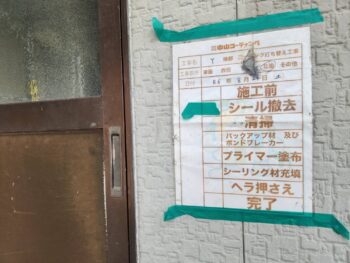 中山コーティング
工事名 Y 様邸 シーリング打ち替え工事
その他
日付 R6年8月
施工前
シール撤去
清掃
バックアップ材 及び
ボンドブレーカー
プライマー塗布
シーリング材充填
ヘラ押さえ
完了